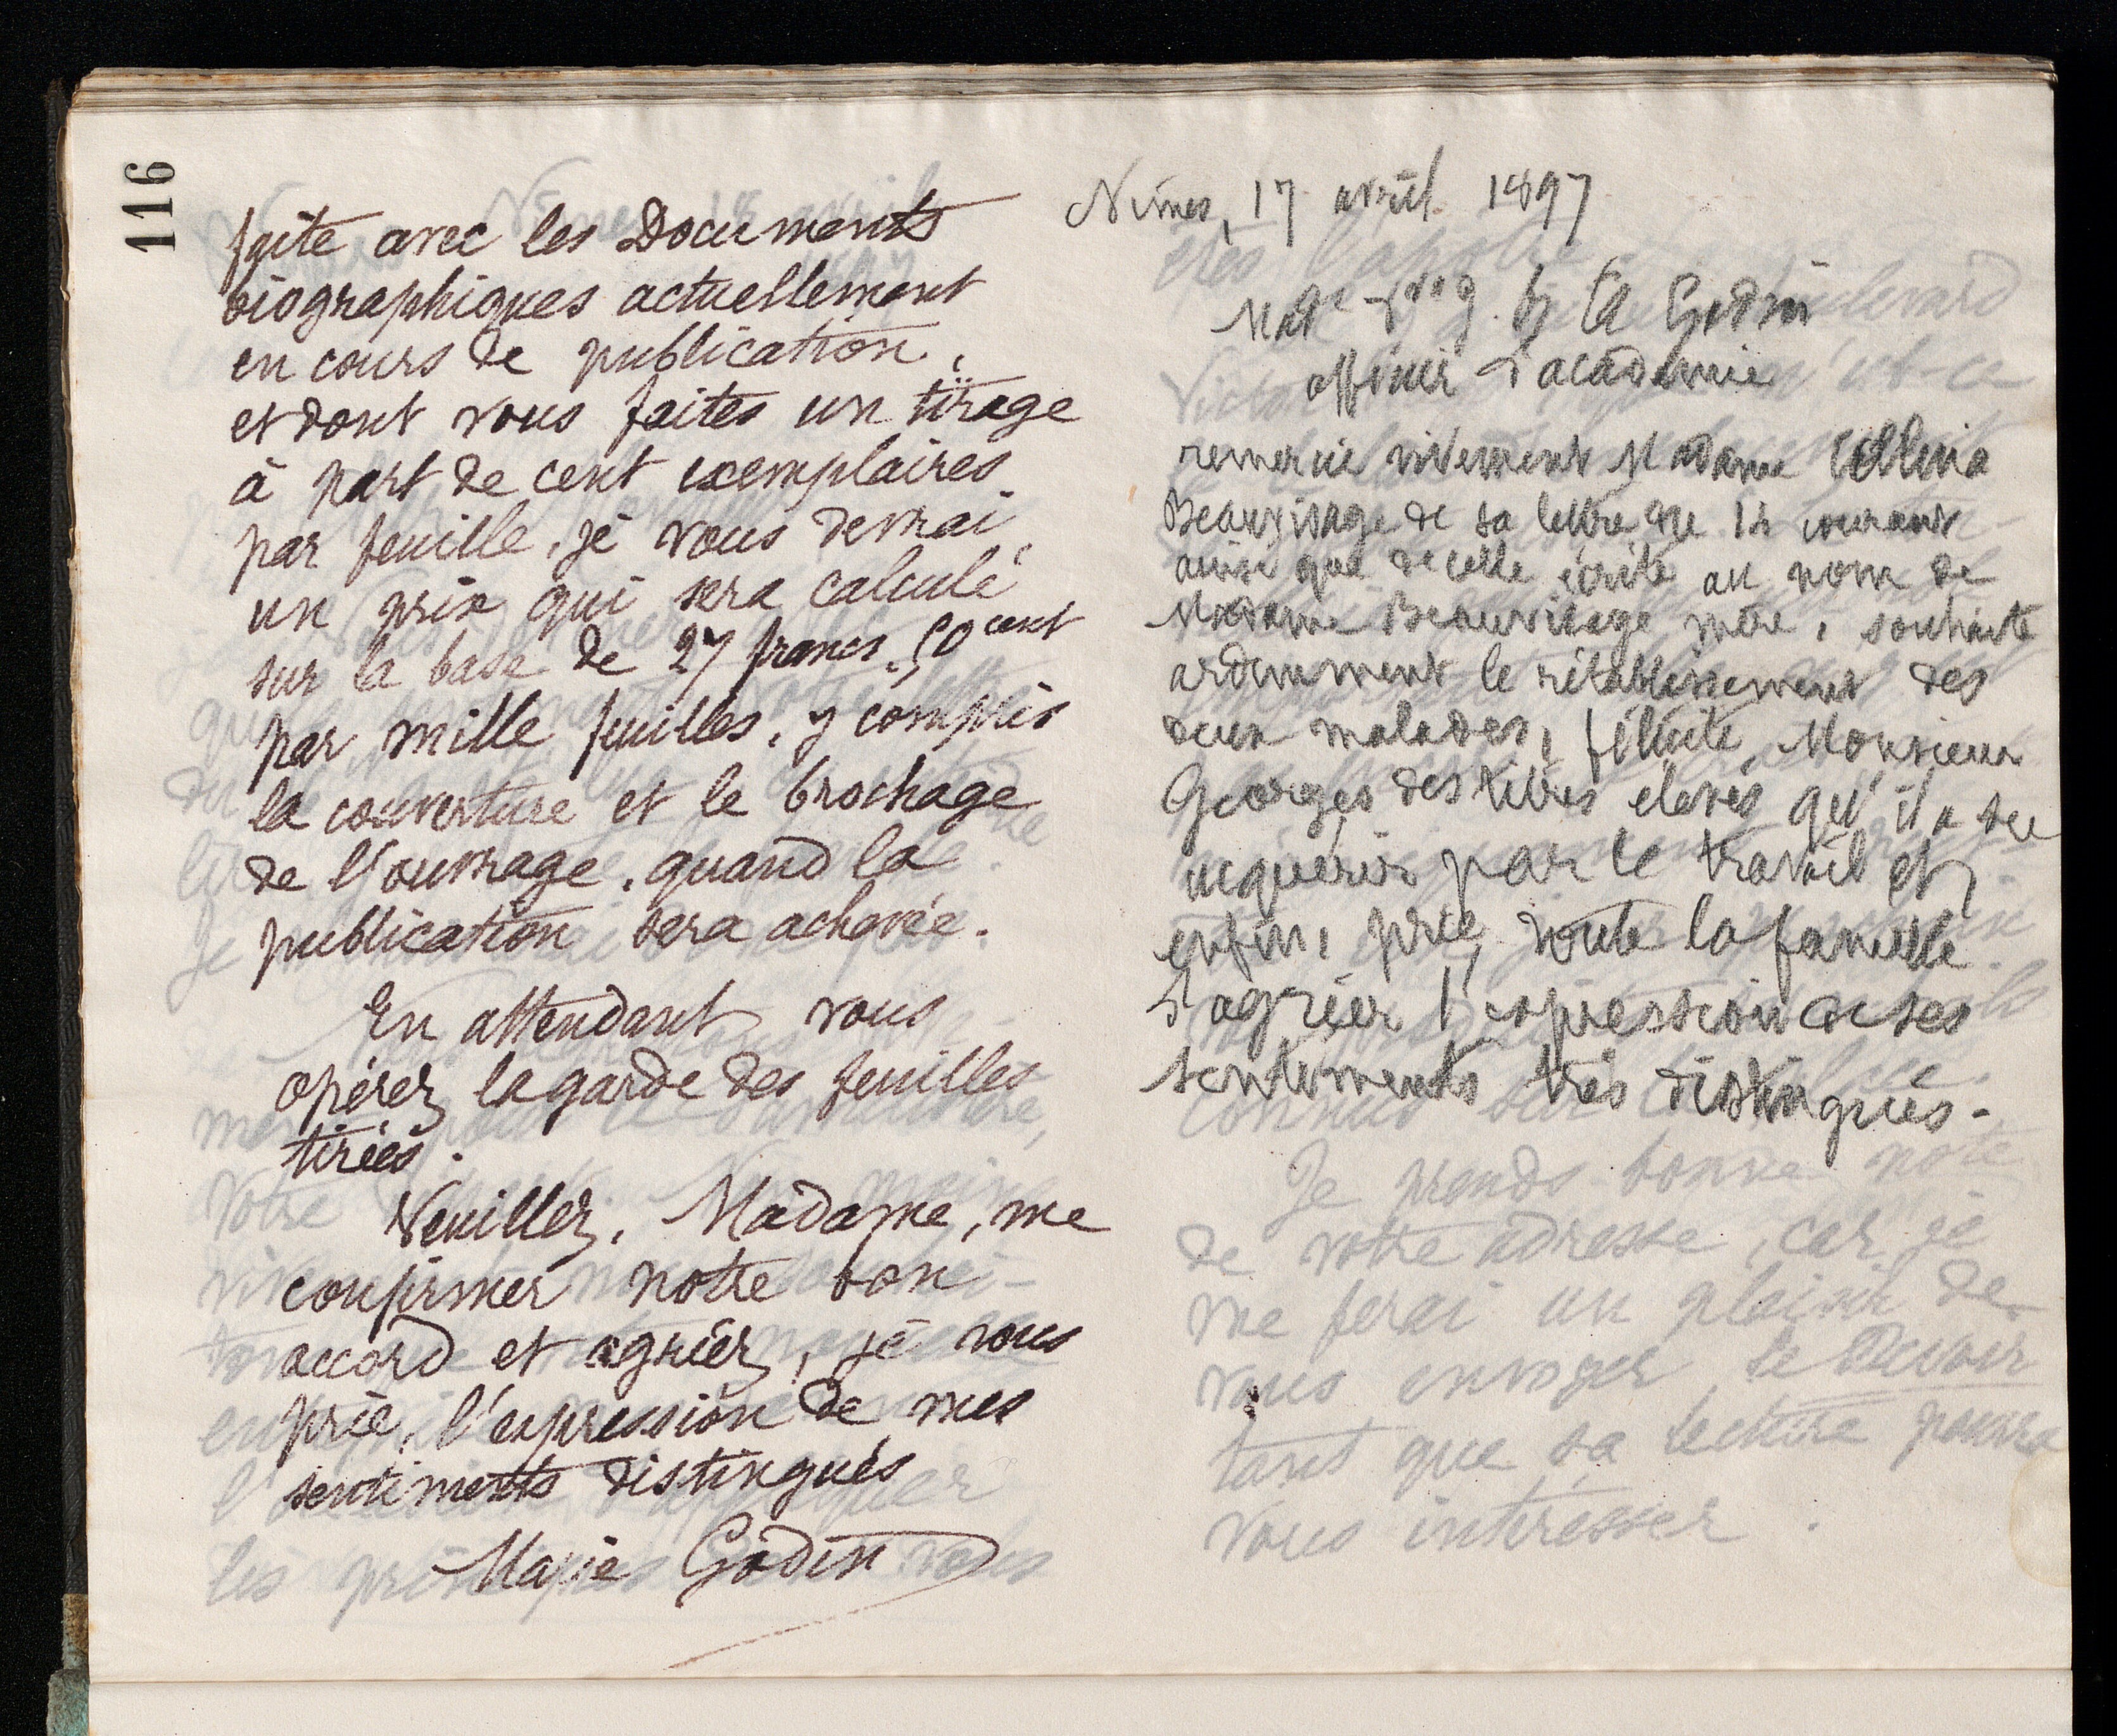 116
faite avec les Documents
biographiques actuellement
en cours de publication,
et dont vous faites un tirage
à part de cent exemplaires
par feuille, je vous devrai,
un prix qui sera calculé
sur la base de 27 francs, 50 cent
par mille feuilles, y compris
la couverture et le brochage
de l'ouvrage, quand la
publication sera achevée.
En attendant vous
opérez la garde des feuilles
tirées.
Veuillez, Madame, me
confirmer notre bon
accord et agréer, je vous
prie, l'expression de mes
sentiments distingués
Marie Godin
Nîmes, 17 avril 1897
Mad Godin
officier d'académie
remercie vivement Madame
Beauvisage de sa lettre du 14 courant
ainsi que de celle écrite au nom de
Madame Beauvisage mère, souhaite
ardemment le rétablissement des
deux malades, félicite, Monsieur
Georges des titres élevés qu'il a su
acquérir par le travail et,
enfin, prie, toute la famille
d'agréer l'expression de ses
sentiments très distingués.
Je prends bonne note
de votre adresse, car je
me ferai un plaisir de
vous envoyer le Devoir
tant que sa lecture pourra
vous intéresser.